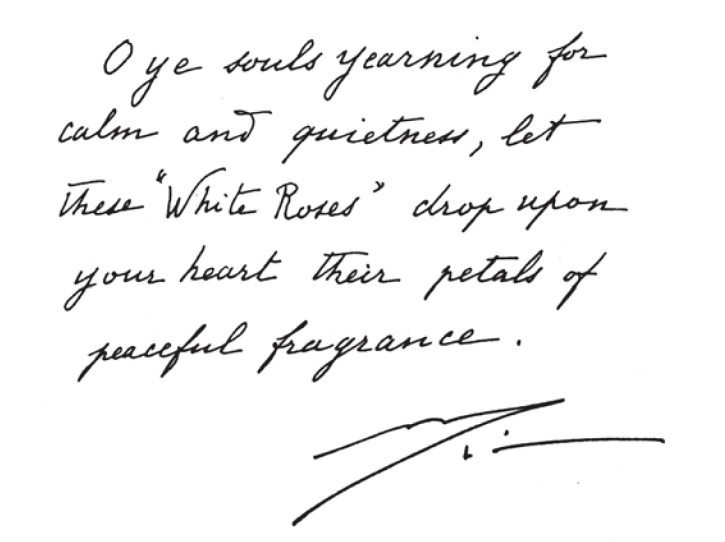 O ye souls yearning for
calm and quietness, let
these "White Roses" drop upon
your heart their petals of
peaceful fragrance.